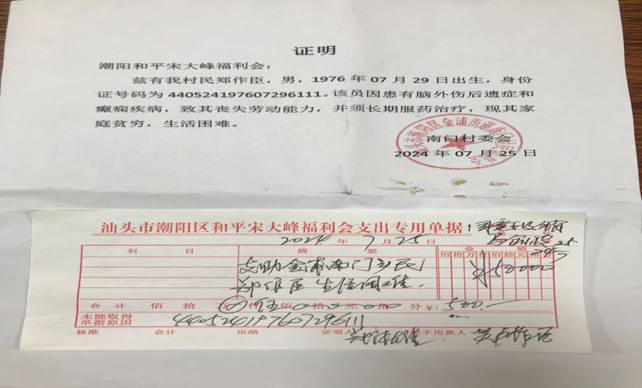 证明
潮阳和平宋大峰福利会：
兹有我村民郑作臣，男，1976 年 07 月 29 日出生，身份
证号码为 440524197607296111。该员因患有脑外伤后遗症和
癫痫疾病，致其丧失劳动能力，并须长期服药治疗，现其家
庭贫穷，生活困难。
南门村委会
2024 年 07 月 25 日
汕头市潮阳区和平宋大峰福利会支出专用单据
2024 年 7 月 25 日
科 目 摘 要 金 额
佰 拾 万 仟 佰 拾 元 角 分
支助金浦南门乡民 ¥50000
郑作臣生活困难
合 计 佰 拾 万 仟 伍 佰 拾 元 角 分 ¥: 500.—
未能取得
单据原因 440524197607296111
核准 会计 出纳 证明人 经手用款人